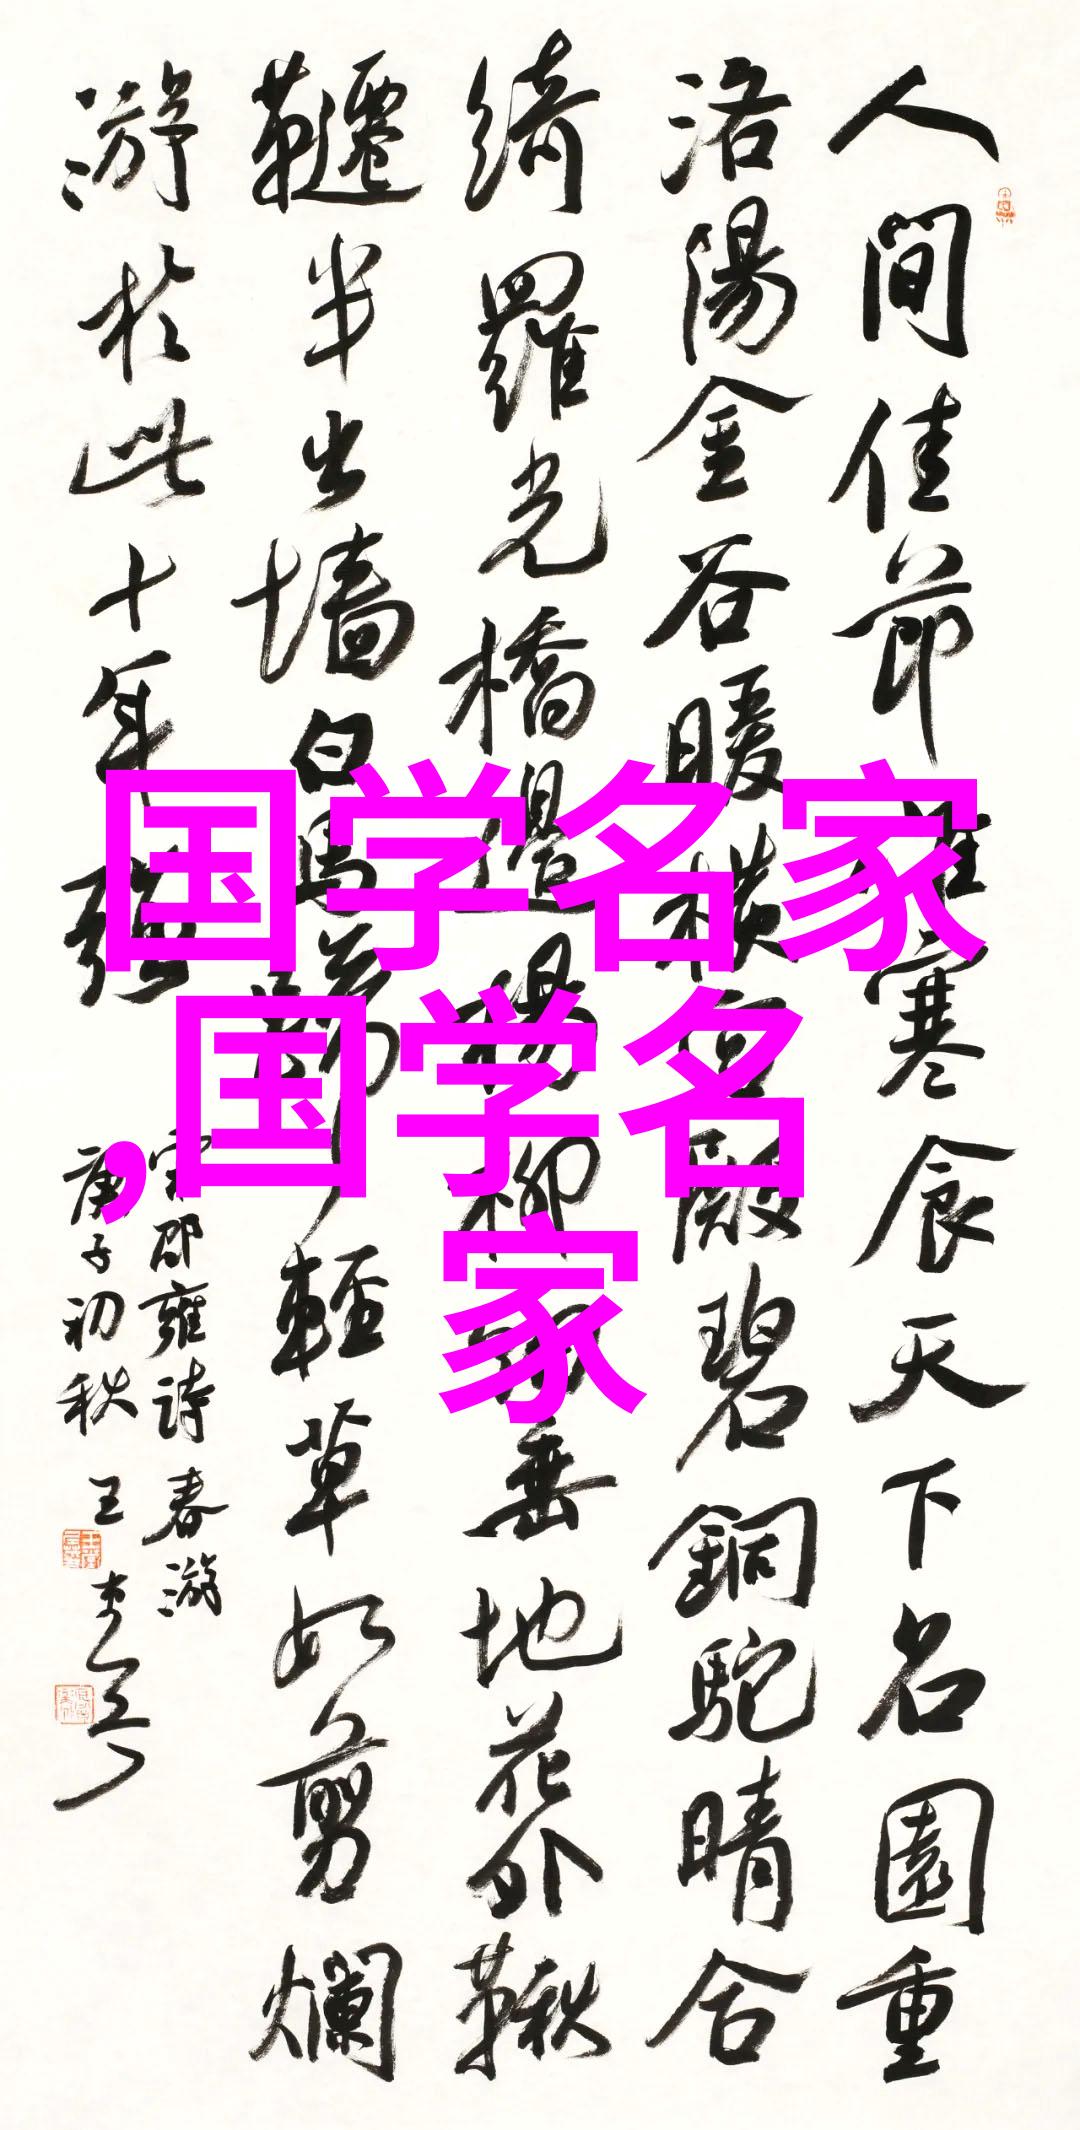 人間佳節寒食天下名園重
洛陽金谷暖橫殿碧銅駝晴合
綺羅光橋邊楊柳垂地花外鞦
韆半出墻白馬蹄輕草如剪爛
游於此十年强
宋邵雍詩春游
庚子初秋王
国学名家
,国学名
家